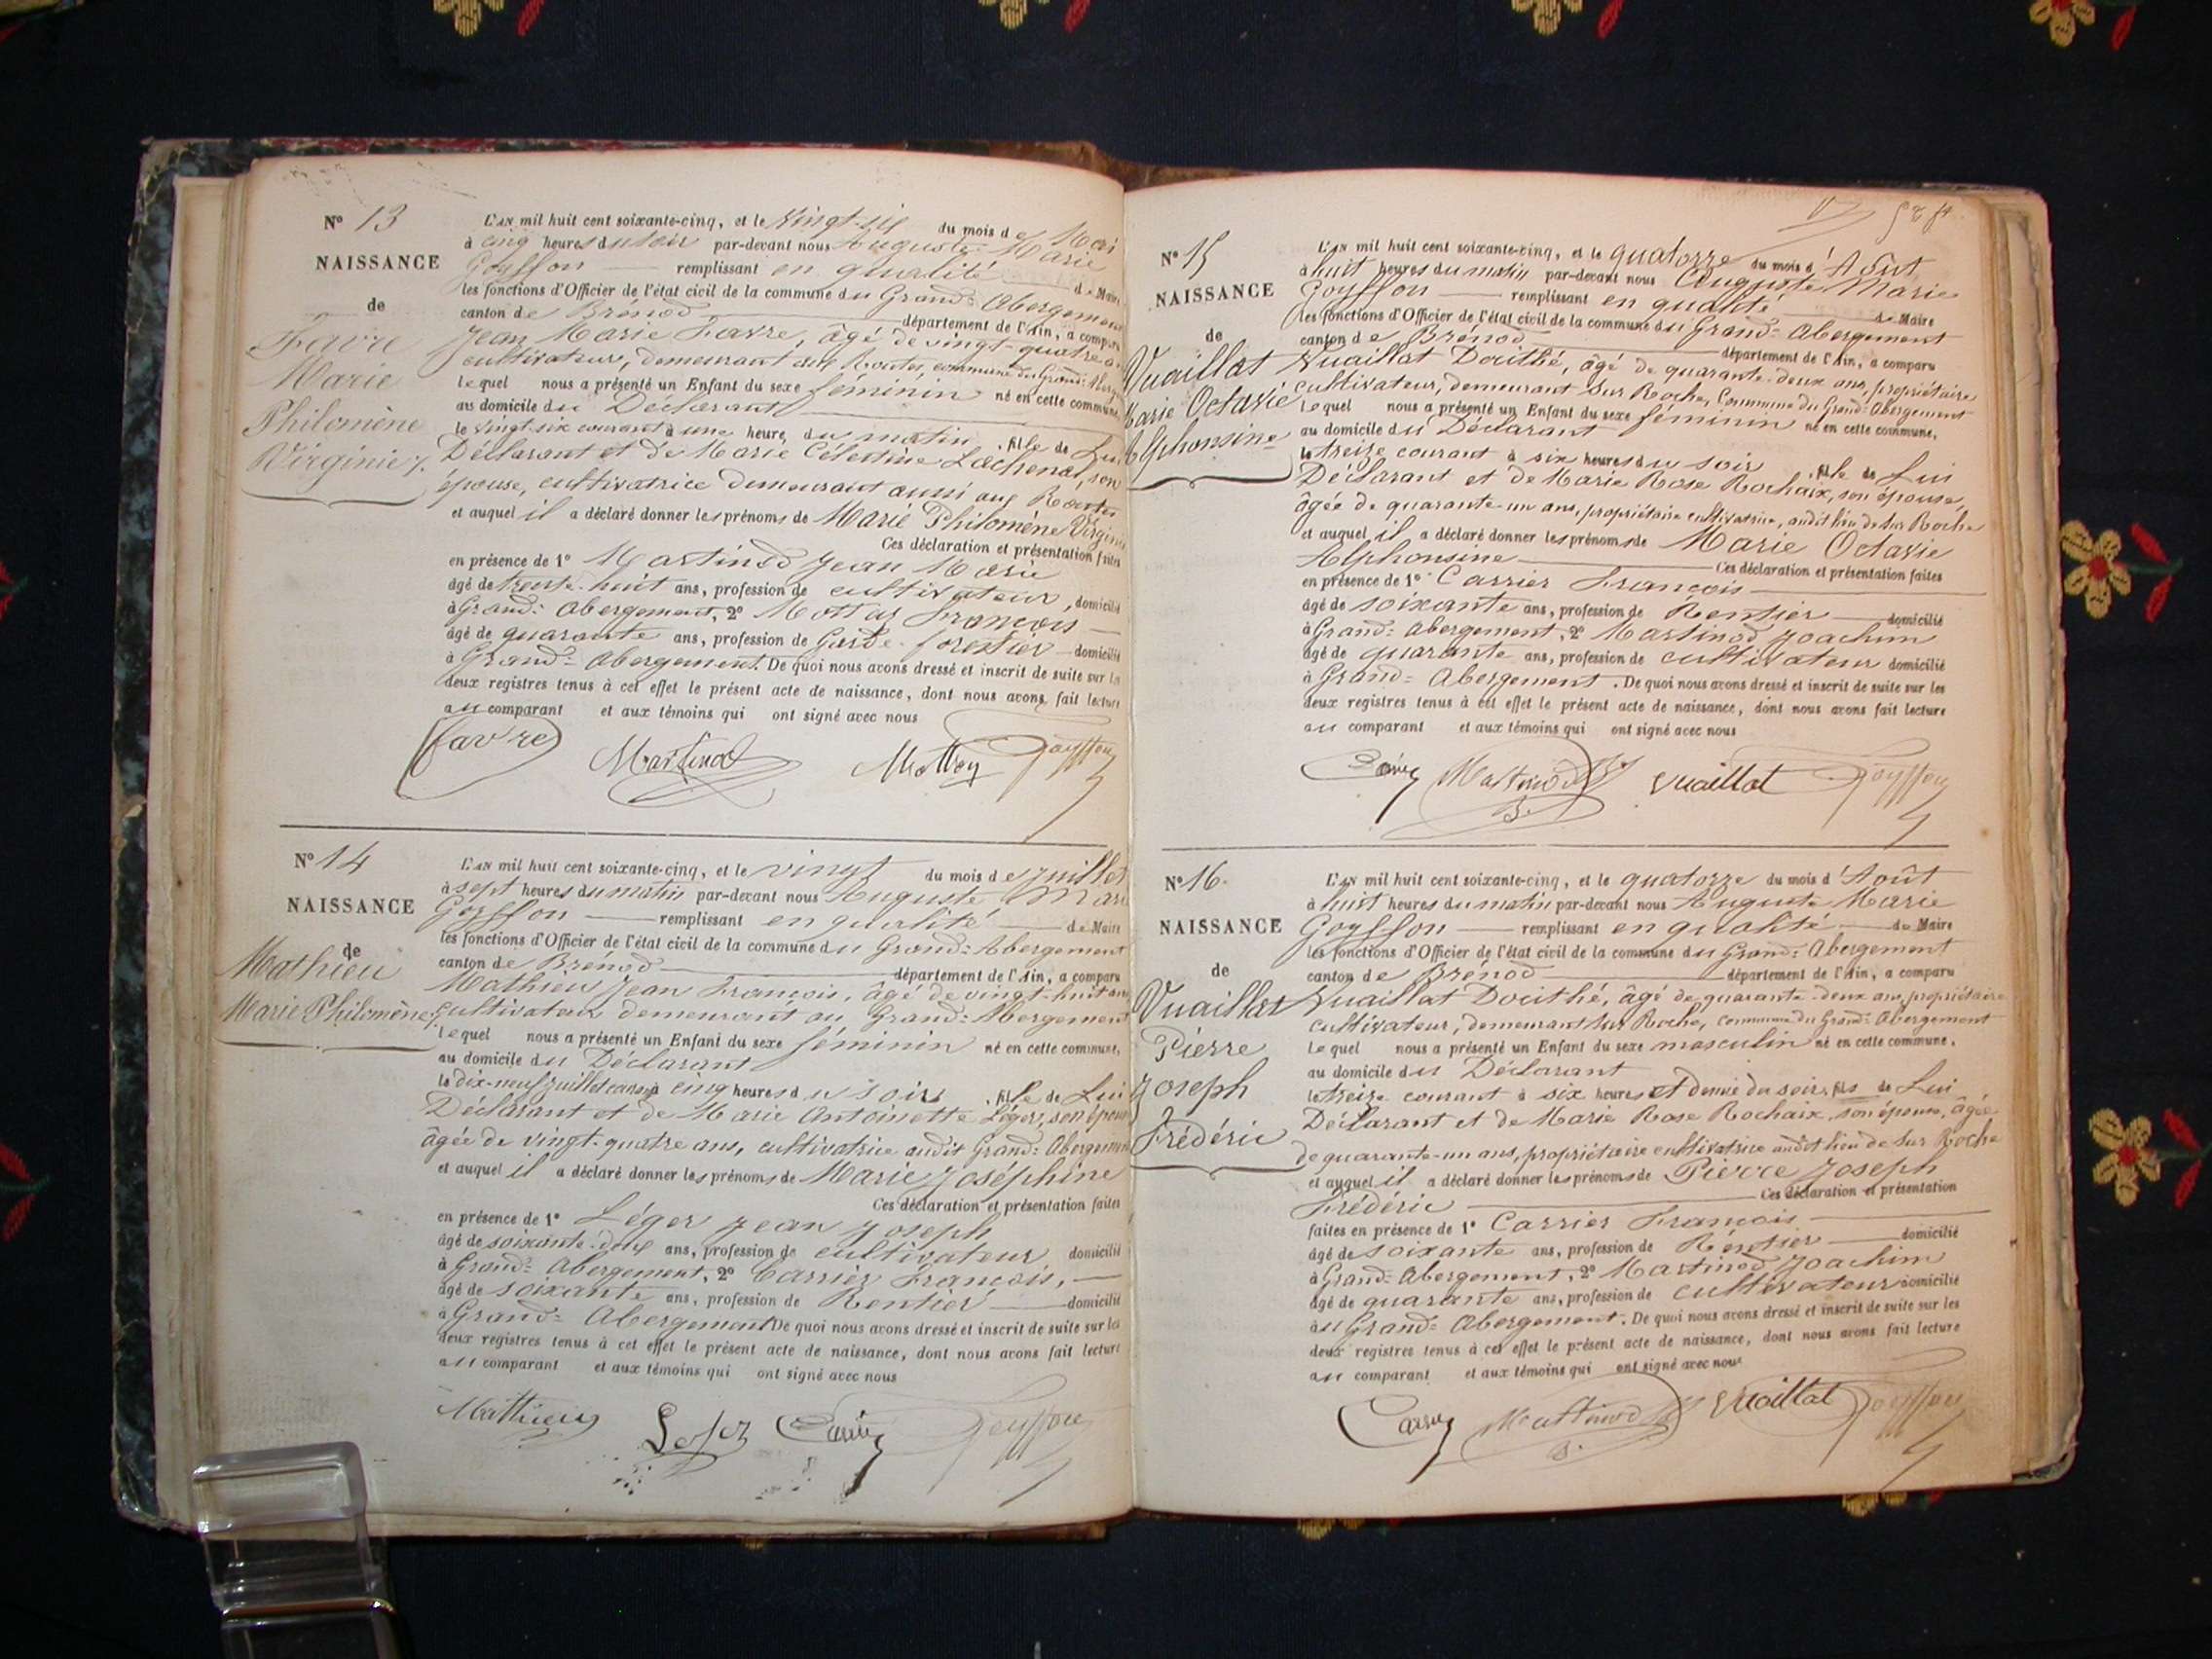 N° 13
NAISSANCE
de
Favre
Marie
Philomène
Virginie
L'AN mil huit cent soixante-cinq, et le Vingt-six du mois de Mai
à cinq heures du soir par-devant nous Auguste Marie
Goyffon remplissant en qualité de Maire
les fonctions d'Officier de l'état civil de la commune du Grand=Abergement
canton de Brénod département de l'Ain, a comparu
Jean Marie Favre, âgé de vingt-quatre
cultivateur, demeurant aux Routes, commune du Grand=Aberg
lequel nous a présenté un Enfant du sexe féminin né en cette commune
au domicile du Déclarant
le vingt-six courant à une heure du matin, fille de Lui
Déclarant et de Marie Célestine Lachenal, son
épouse, cultivatrice demeurant aussi aux Routes
et auquel il a déclaré donner les prénoms de Marie Philomène Virginie
Ces déclaration et présentation faites
en présence de 1° Martinod Jean Marie
âgé de trente-huit ans, profession de cultivateur, domicilié
à Grand=Abergement, 2° Mottaz François
âgé de quarante ans, profession de Garde-forestier domicilié
à Grand=Abergement. De quoi nous avons dressé et inscrit de suite sur les
deux registres tenus à cet effet le présent acte de naissance, dont nous avons fait lecture
au comparant et aux témoins qui ont signé avec nous
favre Martinod Goyffon
N° 14
NAISSANCE
de
Mathieu
Marie Philomène
L'AN mil huit cent soixante-cinq, et le vingt du mois de Juillet
à sept heures du matin par-devant nous Auguste Mari
Goyffon remplissant en qualité de Maire
les fonctions d'Officier de l'état civil de la commune du Grand=Abergement
canton de Brénod département de l'Ain, a comparu
Mathieu Jean François, âgé de vingt-huit ans
cultivateur demeurant au Grand=Abergement
lequel nous a présenté un Enfant du sexe féminin né en cette commune,
au domicile du Déclarant
le dix-neuf juillet courant à cinq heures du soir, fille de Lui
Déclarant et de Marie Antoinette Léger, son épouse
âgée de vingt-quatre ans, cultivatrice audit Grand=Abergement
et auquel il a déclaré donner les prénoms de Marie Joséphine
Ces déclaration et présentation faites
en présence de 1° Léger Jean Joseph
âgé de soixante-doux ans, profession de cultivateur domicilié
à Grand=Abergement, 2° Carrier François,
âgé de soixante ans, profession de Rentier domicilié
à Grand=Abergement De quoi nous avons dressé et inscrit de suite sur les
deux registres tenus à cet effet le présent acte de naissance, dont nous avons fait lecture
au comparant et aux témoins qui ont signé avec nous
Mathieu Leger Carrier Goyffon
N° 15
NAISSANCE
de
Vuaillat
Marie Octavie
Alphonsine
L'AN mil huit cent soixante-cinq, et le quatorze du mois d'Août
à huit heures du matin par-devant nous Auguste Marie
Goyffon remplissant en qualité de Maire
les fonctions d'Officier de l'état civil de la commune du Grand=Abergement
canton de Brénod département de l'Ain, a comparu
Vuaillat Dorithé, âgé de quarante-deux ans, propriétaire
cultivateur, demeurant Sur Roche, Commune du Grand=Abergement
lequel nous a présenté un Enfant du sexe féminin né en cette commune,
au domicile du Déclarant
le treize courant à six heures du soir, fille de Lui
Déclarant et de Marie Rose Rochaix, son épouse,
âgée de quarante-un ans, propriétaire cultivatrice, audit lieu de Sur Roche
et auquel il a déclaré donner les prénoms de Marie Octavie
Alphonsine Ces déclaration et présentation faites
en présence de 1° Carrier François
âgé de soixante ans, profession de Rentier domicilié
à Grand=Abergement, 2° Martinod Joachim
âgé de quarante ans, profession de cultivateur domicilié
à Grand=Abergement. De quoi nous avons dressé et inscrit de suite sur les
deux registres tenus à cet effet le présent acte de naissance, dont nous avons fait lecture
au comparant et aux témoins qui ont signé avec nous
Martinod Vuaillat Goyffon
N° 16.
NAISSANCE
de
Vuaillat
Pierre
Joseph
Frédéric
L'AN mil huit cent soixante-cinq, et le quatorze du mois d'Août
à huit heures du matin par-devant nous Auguste Marie
Goyffon remplissant en qualité de Maire
les fonctions d'Officier de l'état civil de la commune du Grand=Abergement
canton de Brénod département de l'Ain, a comparu
Vuaillat Dorithé, âgé de quarante-deux ans, propriétaire
cultivateur, demeurant Sur Roche, commune du Grand=Abergement
lequel nous a présenté un Enfant du sexe masculin né en cette commune,
au domicile du Déclarant
le treize courant à six heures et demie du soir, fils de Lui
Déclarant et de Marie Rose Rochaix, son épouse, âgée
de quarante-un ans, propriétaire cultivatrice audit lieu de Sur Roche
et auquel il a déclaré donner les prénoms de Pierre Joseph
Frédéric Ces déclaration et présentation
faites en présence de 1° Carrier François domicilié
âgé de soixante ans, profession de Rentier
à Grand=Abergement, 2° Martinod Joachim
âgé de quarante ans, profession de cultivateur domicilié
au Grand=Abergement. De quoi nous avons dressé et inscrit de suite sur les
deux registres tenus à cet effet le présent acte de naissance, dont nous avons fait lecture
au comparant et aux témoins qui ont signé avec nous
Martinod Vuaillat Goyffon